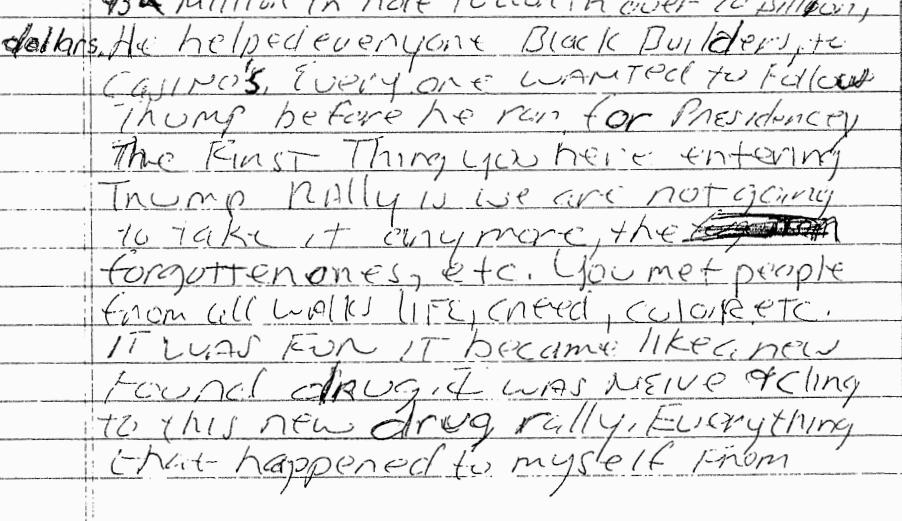 Million in
dollars. He helped everyone Black Builders, to
CASINO'S. Everyone WANTED to Follow
Trump before he ran for Presidencey
The First Thing you here entering
Trump RAlly is we are not going
to take it anymore, the
forgotten ones, etc. You met people
from all walks LIFE, creed, color etc.
IT WAS FUN IT became like a new
found drug, I WAS NEIVE & cling
to this new drug rally. Everything
that happened to myself From